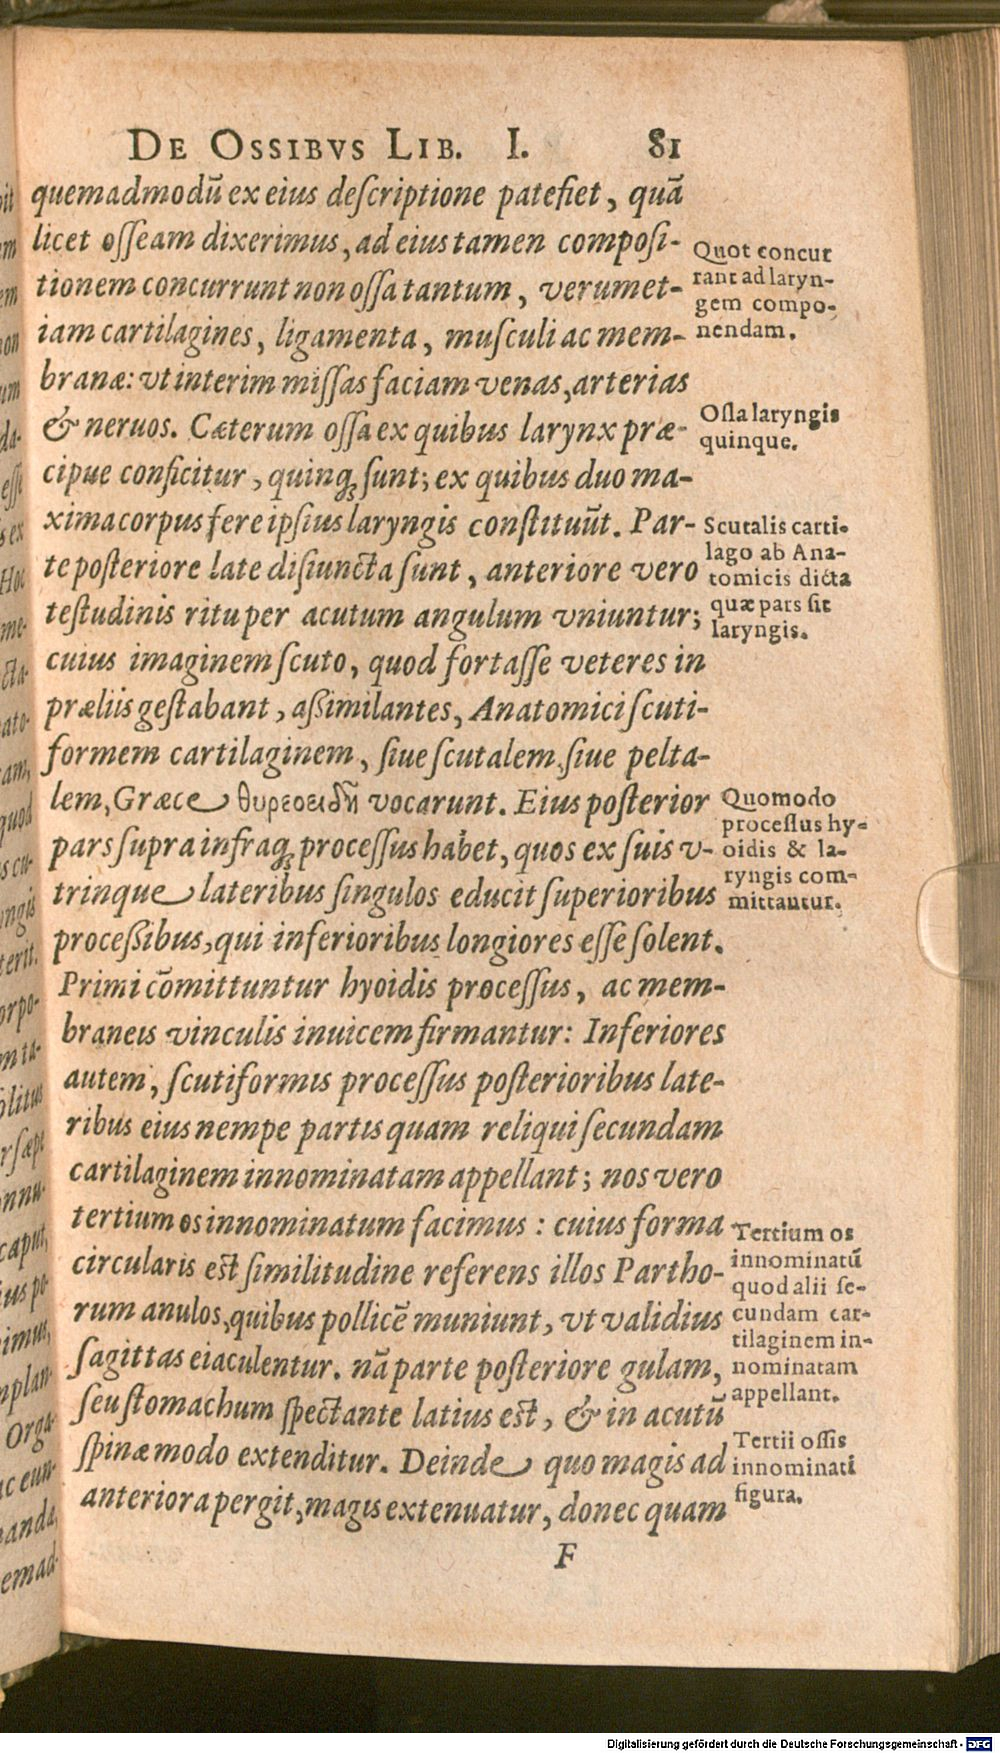 DE OSSIBVS LIB. I. 81
quemadmodū ex eius deſcriptione patefiet, quā
licet oſſeam dixerimus, ad eius tamen compoſi-
tionem concurrunt non oſſa tantum, verumet-
iam cartilagines, ligamenta, muſculi ac mem-
branæ: vt interim miſſas faciam venas, arterias
& neruos. Cæterum oſſa ex quibus larynx præ-
cipue conficitur, quinq; ſunt; ex quibus duo ma-
xima corpus fere ipſius laryngis conſtituūt. Par-
te poſteriore late diſiuncta ſunt, anteriore vero
teſtudinis ritu per acutum angulum vniuntur;
cuius imaginem ſcuto, quod fortaſſe veteres in
præliis geſtabant, aßimilantes, Anatomici ſcuti-
formem cartilaginem, ſiue ſcutalem, ſiue pelta-
lem, Græce θυρεοειδῆ vocarunt. Eius poſterior
pars ſupra infraq; proceſſus habet, quos ex ſuis v-
trinque lateribus ſingulos educit ſuperioribus
proceßibus, qui inferioribus longiores eſſe ſolent.
Primi cōmittuntur hyoidis proceſſus, ac mem-
braneis vinculis inuicem firmantur: Inferiores
autem, ſcutiformis proceſſus poſterioribus late-
ribus eius nempe partis quam reliqui ſecundam
cartilaginem innominatam appellant; nos vero
tertium os innominatum facimus: cuius forma
circularis eſt ſimilitudine referens illos Partho-
rum anulos, quibus pollicē muniunt, vt validius
ſagittas eiaculentur. nā parte poſteriore gulam,
ſeu ſtomachum ſpectante latius eſt, & in acutū
ſpinæ modo extenditur. Deinde quo magis ad
anteriora pergit, magis extenuatur, donec quam
F
Quot concur
rant ad laryn-
gem compo-
nendam.
Oſſa laryngis
quinque.
Scutalis carti-
lago ab Ana-
tomicis dicta
quæ pars ſit
laryngis.
Quomodo
proceſſus hy-
oidis & la-
ryngis com-
mittantur.
Tertium os
innominatū
quod alii ſe-
cundam car-
tilaginem in-
nominatam
appellant.
Tertii oſſis
innominati
figura.
Digitalisierung gefördert durch die Deutsche Forschungsgemeinschaft - DFG